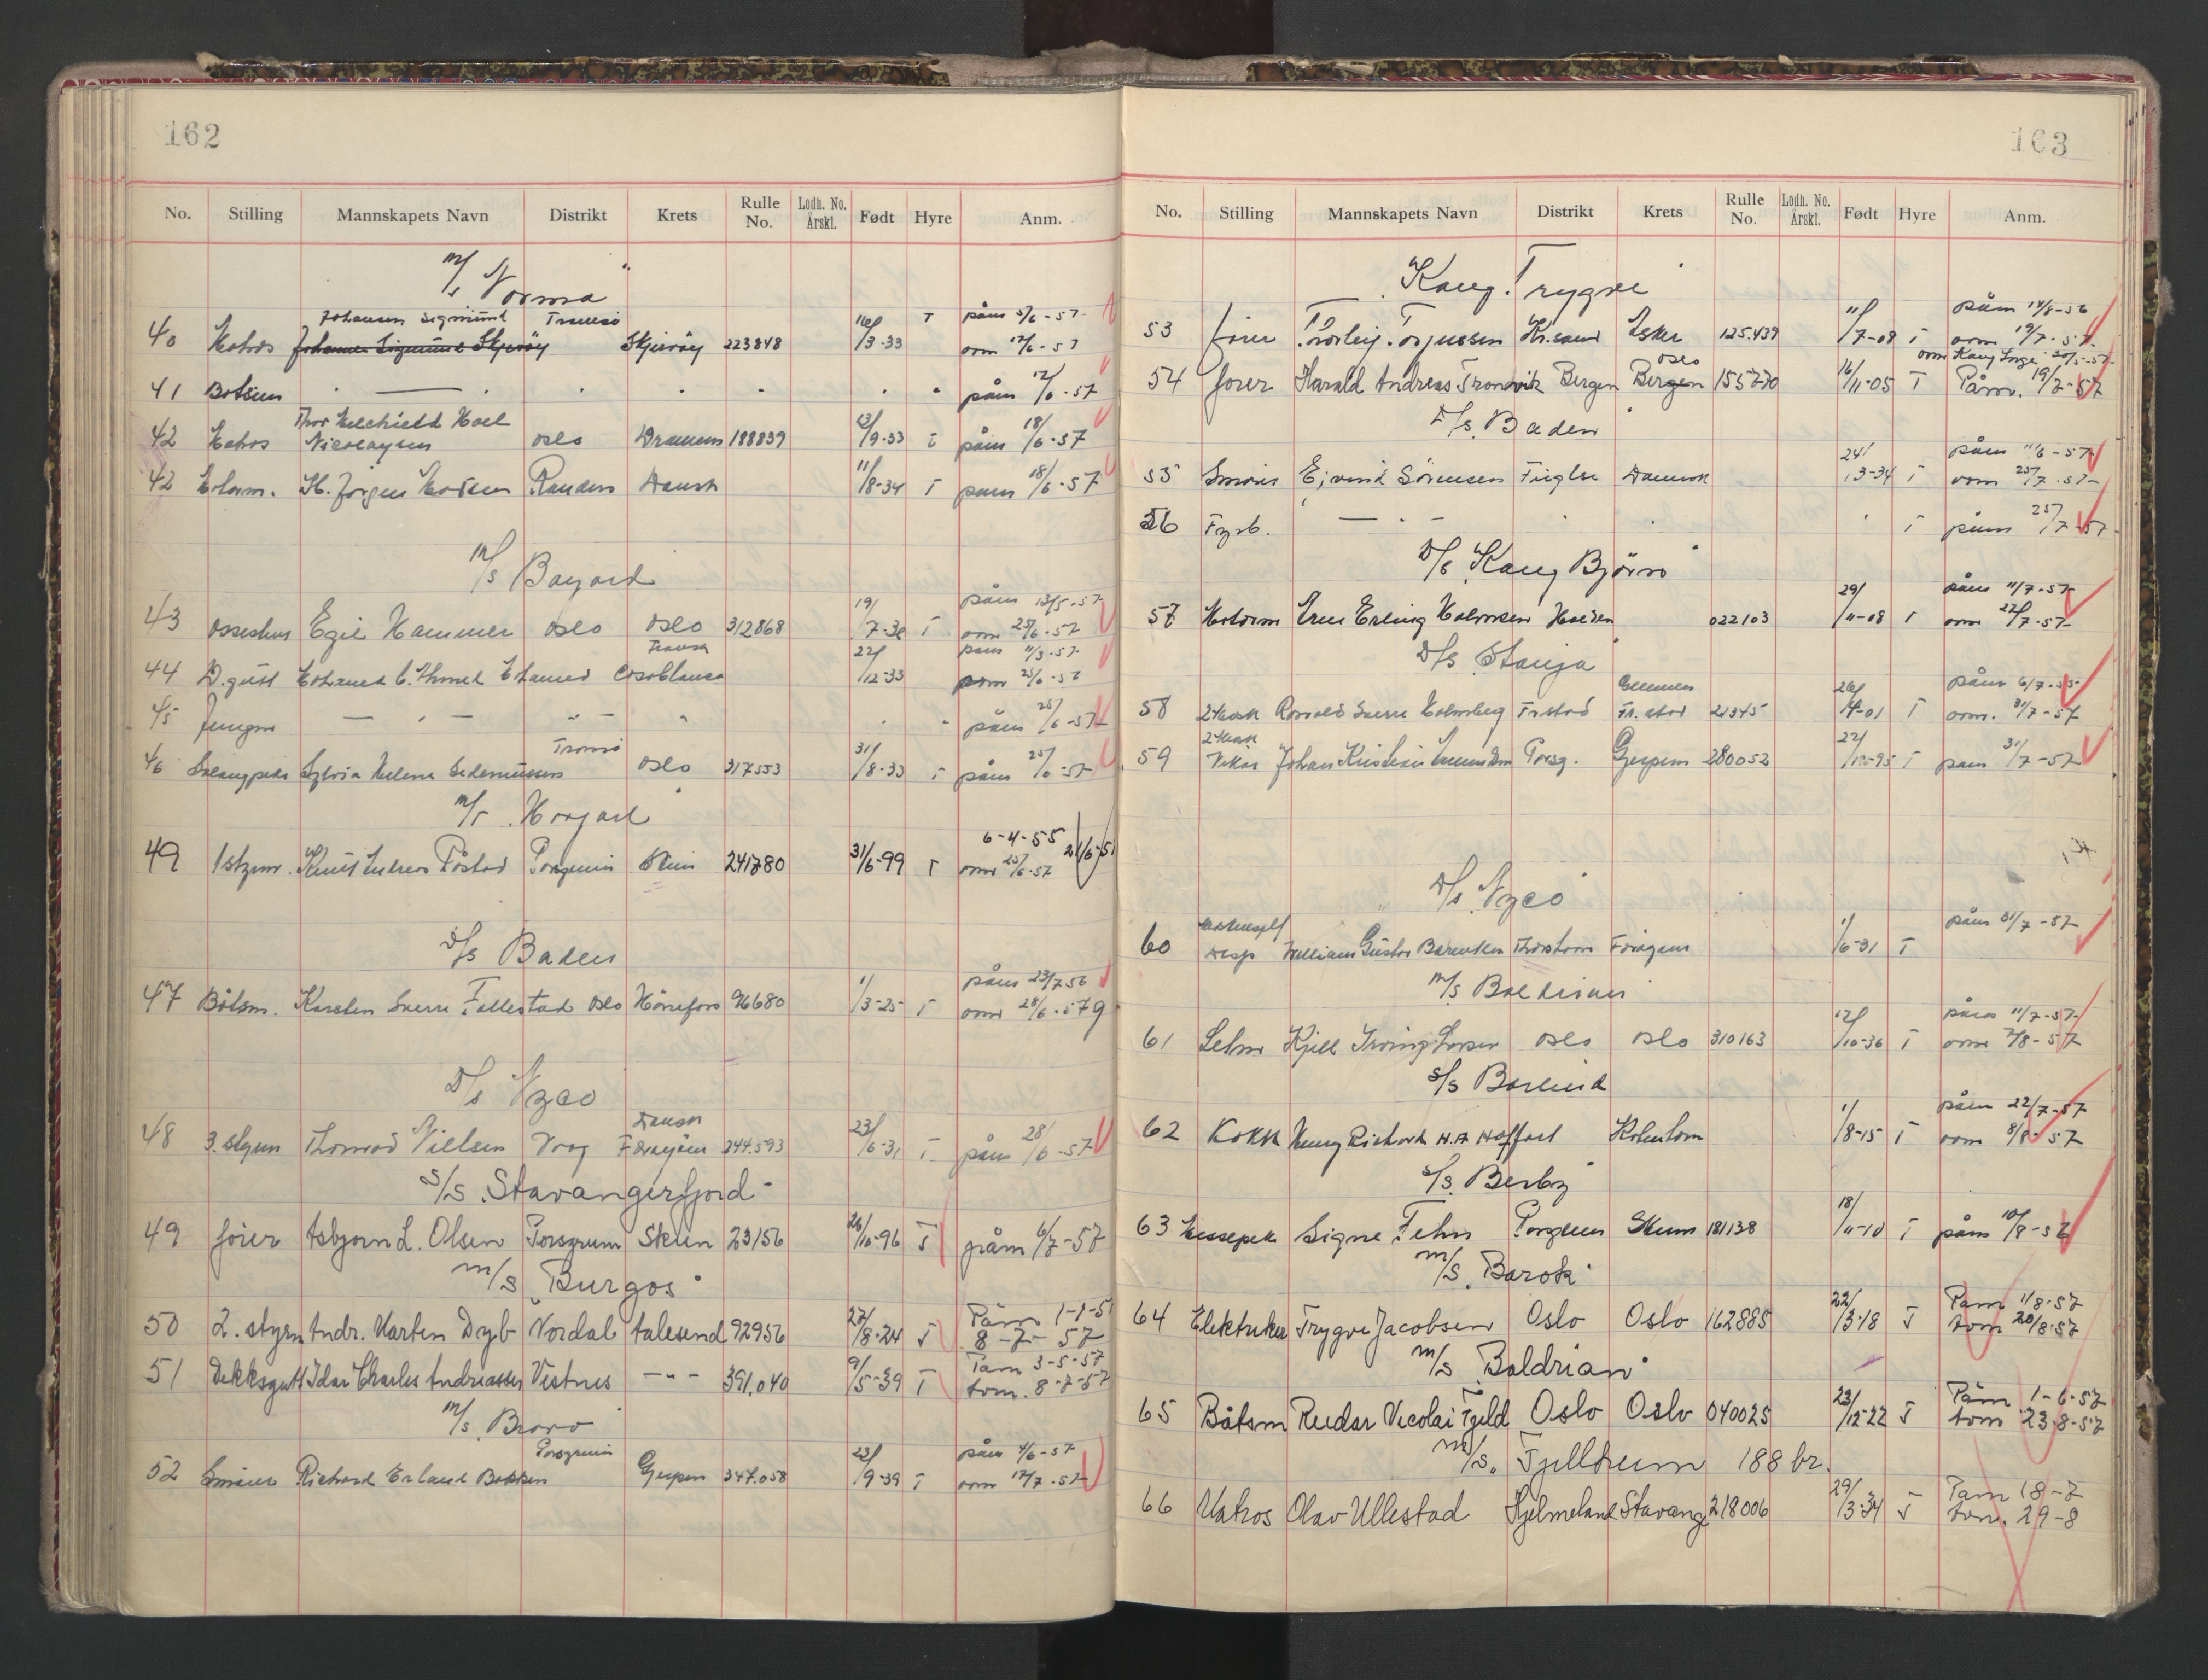 162
No. Stilling Mannskapets Navn Distrikt Krets Rulle No. Lodh. No. Årskl. Født Hyre Anm.
m/s Norma
Johansen Sigmund Tromsö påm 5/6-57
40 Matros Johannes Sigmund Skjervöy Skjervöy 223848 16/3-33 T avm 12/6-57
41 Båtsm - — - " " " " " påm 12/6-57
Thor Melchield Hoel
42 Matros Nicolaysen Oslo Drammen 188839 12/9-33 T påm 18/6-57
42 Motorm. H. Jörgen Madsen Randers Dansk 11/8-34 T påm 18/6-57
m/s Bayard
påm 13/5-57
43 Egil Hammer Oslo Oslo 312868 19/7-30 T avm 25/6-57
Fransk påm 11/3-57
44 D.gutt Mohamed B. Ahmed Mohamed Casablanca 22/12-33 avm 25/6-57
45 Jungm — " — " — " " " påm 25/6-57
Tromsö
46 Salongpike Sylvia Helene Oslo 317553 31/8-33 T påm 25/6-57
m/s Havjarl
6-4-55
49 1 styrm. Knut Andreas Röstad Porsgrunn Skien 241780 31/6-99 T avm 25/6-57
D/s Baden
påm 23/7 56
47 Båtsm. Karsten Sverre Fallestad Oslo Hönefoss 96680 1/3-25 T avm 28/6-57
D/s Nyco
Dansk
48 3. styrm Thorvod Nielsen Vaag Færöyene 244.593 23/6-31 T påm 28/6-57
S/S "Stavangerfjord"
49 fører Asbjørn L. Olsen Porsgrunn Skien 23156 26/10-96 T påm 6/7-57
m/s "Burgos"
Påm 1-1-5
50 2. styrm Andr. Marten Dyb Nordal Aalesund 92956 27/8-24 T 8-7-57
Påm 3-5-57
51 Dekksgutt Idar Charles Andreassen Vestnes — " — 391.040 9/5-39 T avm. 8-7-57
m/s Bravo
Porsgrunn påm 4/6-57
52 Smörer Richard Erland Bakken Gjerpen 347.058 23/9-39 T avm 17/7-57
163
No. Stilling Mannskapets Navn Distrikt Krets Rulle No. Lodh. No. Årskl. Født Hyre Anm.
"Kong Trygve"
påm 14/8-56
53 fører Thorleif Torjussen Kr.sand Esker 125.439 11/7-08 T avm 19/7-57
Oslo avm Kong Inge 20/5-57
54 fører Harald Andreas Tronsvik Bergen Bergen 155770 16/11-05 T Påm. 19/7-57
D/s "Baden"
påm 11/6-57
55 Smörer Ejvind Sörensen Fuglse Danmark 24/3-34 T avm 25/7-57
56 Fyrb. — " — " " " T påm 25/7-57
D/S "Kong Björn"
påm 11/7-57
57 Motorm Arne Erling Halvorsen Halden 022103 29/11-08 T avm 22/7-57
D/s Stanja
Glemmen påm 6/7-55
58 2 mask Ronald Sverre Holmberg Fr.stad Fr.stad 21345 26/4-01 T avm. 31/7-57
2 mask
59 Vikar Johan Kristian Porsg. Gjerpen 280052 22/10-95 T påm 31/7-57
D/s "Nyco"
påm 31/7-57
60 Desp William Gustav Berentsen Thorshavn Færöyene 1/6-31 T
m/s Baldrian
påm 11/7-57
61 Letm Kjell Irving Larsen Oslo Oslo 310163 12/10-36 T avm 7/8-57
S/S Borlind
påm 22/7-57
62 Kokk Henry Richard H.A Hoffart Kbhavn 1/8-15 T avm 8/8-57
S/S "Berby"
63 Messepike Signe Fehn Porsgrunn Skien 181138 18/11-10 T påm 10/8-57
m/s "Barok"
Påm 1/8-57
64 Elektriker Trygve Jacobsen Oslo Oslo 162885 22/3-18 T avm 20/8-57
m/s "Baldrian"
Påm 1-6-57
65 Båtsm Reidar Nicolai Fjeld Oslo Oslo 040025 23/12-22 T avm 23-8-57
m/s "Fjellheim 188 br.
Påm 18-7
66 Matros Olav Ullestad Hjelmeland Stavange 218006 29/3-34 T avm. 29-8